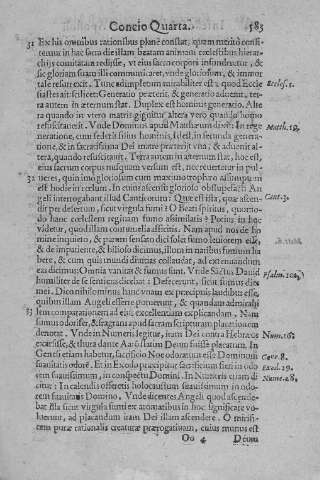 Concio Quarta. 585
31 Ex his omnibus rationibus planè constat, quàm meritò consti-
tutum in hac sacra die illam beatam animam caelestibus hierar-
chijs comitatam redijsse, vt eius sacro corpori infunderetur, &
sic gloriam suam illi communicaret, vnde gloriosum, & immor
tale resurrexit. Tunc adimpletum mirabiliter est quod Eccle Eccles. 1.
siastes ait scilicet: Generatio praeterit, & generatio aduenit, ter-
ra autem in aeternum stat. Duplex est hominis generatio. Alte
ra quando in vtero matris gignitur altera verò quando homo
resuscitatus est. Vnde Dominus apud Matthaeum dixit: In rege Matth. 19.
neratione, cum sederit filius hominis, Id est, in secunda genera-
tione, & in sacratissima Dei matre praeterijt vna, & aduenit al-
tera, quando resuscitauit. Terra autem in aeternum stat, hoc est,
eius sacrum corpus nusquam versum est, nec reuertetur in pul-
32 ueres, quin imò gloriosum cum maximo trophaeo assumptum
est hodie in caelum. In cuius ascensu glorioso obstupefacti An
geli interrogabant illud Canticorum: Quae est ista, quae ascen- Cant. 3.
dit per desertum, sicut virgula fumi? O Beati spiritus, quomo-
do hanc caelestem reginam fumo assimilatis? Potius in hoc
videtur, quod illam contumelia afficitis. Nam apud nos de ho
mine inquieto, & parum sensato dici solet fumo leuiorem esse,
& de impudente, & bilioso dicimus, illum in naribus fumum ha
bere, & cum quis mundi diuitias collaudat, ad extenuandum
eas dicimus: Omnia vanitas & fumus sunt. Vnde Sanctus Dauid
humiliter de se sentiens dicebat: Defecerunt, sicut fumus dies Psalm. 101.
mei.
quibus illam Angeli efferre ponerent, & quandam admirabi
33 lem comparationem ad eius excellentiam explicandam. Nam
fumus odorifer, & fragrans apud sacram Scripturam placationem
denotat. Vnde in Numeris legitur, iram Dei contra Hebraeos Num. 16.
excarsisse, & thura dante Aarò statim Deum fuisse placatum. In
Genesi etiam habetur, sacrificio Noe odoratum esse Dominum Gen. 8.
suauitatis odorē. Et in Exodo praecipitur sacrificium fieri in odo Exod. 29.
rem suauissimum, in conspectu Domini. In Numeris quàm di Nume. 28.
citur: In calendis offeretis holocaustum suauissimum in odo-
rem suauitatis Domino. Vnde dicentes Angeli quod ascende-
bat illa sicut virgula fumi ex aromatibus in hoc significare vo-
luerunt, ad placandum iram Dei illam ascendere. O mirifi-
cum purae rationalis creaturae praerogatiuam, cuius munus est
Oo 4 Deum